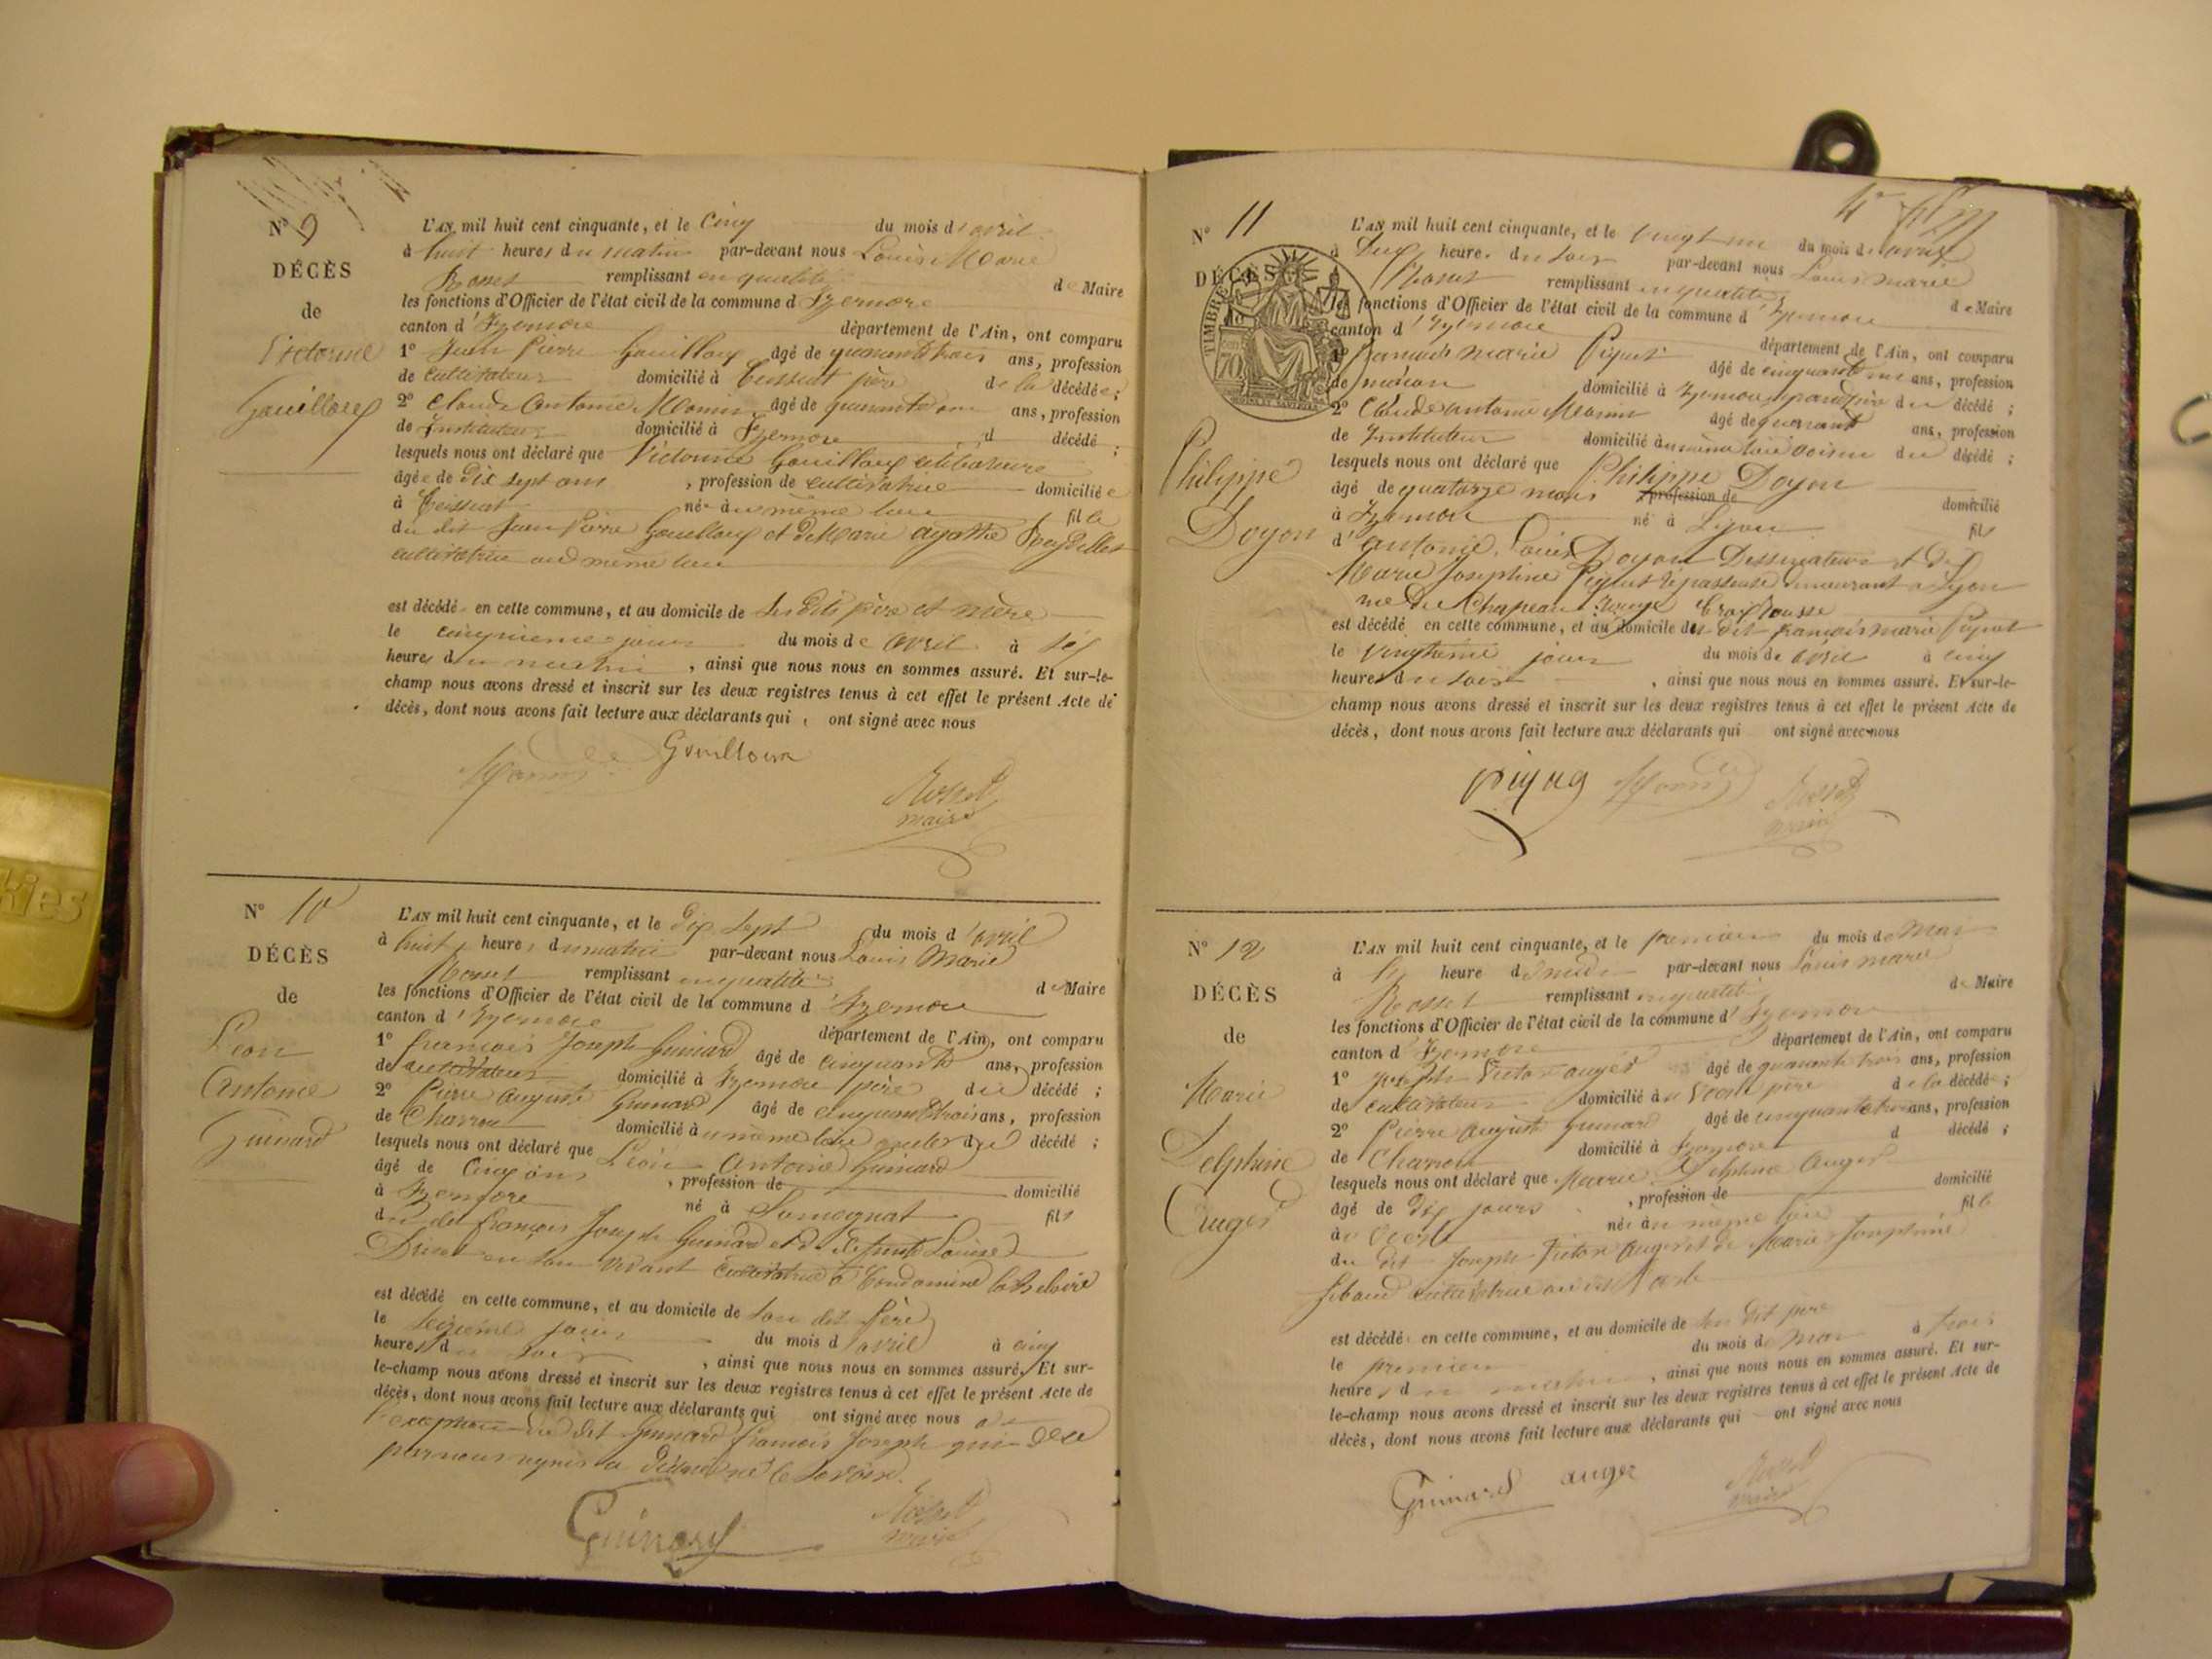 N° 9
DÉCÈS
de
Victorine
Gouilloux
L'AN mil huit cent cinquante, et le Cinq du mois d'avril
à huit heures du matin par-devant nous Louis Marie
Rosset remplissant en qualité de Maire
les fonctions d'Officier de l'état civil de la commune d'Izernore
canton d'Izernore département de l'Ain, ont comparu
1° Jean Pierre Gouilloux âgé de quarante trois ans, profession
de cultivateur domicilié à Ceissiat père de la décédée ;
2° Claude Antoine Monin âgé de quarante ans, profession
de Instituteur domicilié à Izernore d décédé ;
lesquels nous ont déclaré que Victorine Gouilloux
âgée de Dix sept ans , profession de cultivatrice domiciliée
à Ceissiat née au même lieu fille
du dit Jean Pierre Gouilloux et de Marie agathe
cultivatrice au même lieu
est décédé en cette commune, et au domicile de ses dits père et mère
le cinquième jour du mois de avril à
heures du matin , ainsi que nous nous en sommes assuré. Et sur-le-
champ nous avons dressé et inscrit sur les deux registres tenus à cet effet le présent Acte de
décès, dont nous avons fait lecture aux déclarants qui ont signé avec nous
Gouilloux
Monin
Rosset
maire
N° 10
DÉCÈS
de
Léon
Antoine
Guinard
L'AN mil huit cent cinquante, et le dix sept du mois d'avril
à huit heures du matin par-devant nous Louis Marie
Rosset remplissant en qualité de Maire
les fonctions d'Officier de l'état civil de la commune d'Izernore
canton d'Izernore département de l'Ain, ont comparu
1° françois Joseph Guinard âgé de cinquante ans, profession
de cultivateur domicilié à Izernore père du décédé ;
2° Pierre Auguste Guinard âgé de cinquante trois ans, profession
de Charron domicilié au même lieu oncle du décédé ;
lesquels nous ont déclaré que Léon Antoine Guinard
âgé de Cinq ans , profession de domicilié
à Izernore né à Samognat fils
du dit françois Joseph Guinard et de défunte Louise
en son vivant cultivatrice à Condamine la
est décédé en cette commune, et au domicile de son dit Père
le seizième jour du mois d'avril à cinq
heures du soir , ainsi que nous nous en sommes assuré. Et sur-
le-champ nous avons dressé et inscrit sur les deux registres tenus à cet effet le présent Acte de
décès, dont nous avons fait lecture aux déclarants qui ont signé avec nous à
l'exception du dit Guinard françois Joseph qui de ce
par nous requis a déclaré ne le savoir.
Guinard
Rosset
maire
N° 11
DÉCÈS
TIMBRE
Philippe
Doyon
L'AN mil huit cent cinquante, et le vingt un du mois d'avril
à Deux heures du soir par-devant nous Louis marie
Rosset remplissant en qualité de Maire
les fonctions d'Officier de l'état civil de la commune d'Izernore
canton d'Izernore département de l'Ain, ont comparu
1° françois marie Piquet âgé de cinquante un ans, profession
de maçon domicilié à Izernore grandpère du décédé ;
2° Claude antoine Monin âgé de quarante ans, profession
de Instituteur domicilié au même lieu voisin du décédé ;
lesquels nous ont déclaré que Philippe Doyon
âgé de quatorze mois , profession de domicilié
à Izernore né à Lyon fils
d'antoine Louis Doyon Dessinateur et de
Marie Josephine Piquet repasseuse demeurant à Lyon
rue du Chapeau Rouge Croix Rousse
est décédé en cette commune, et au domicile du dit françois marie Piquet
le vingtième jour du mois de avril à cinq
heures du soir , ainsi que nous nous en sommes assuré. Et sur-le-
champ nous avons dressé et inscrit sur les deux registres tenus à cet effet le présent Acte de
décès, dont nous avons fait lecture aux déclarants qui ont signé avec nous
Monin
Rosset
maire
N° 12
DÉCÈS
de
Marie
Delphine
Auger
L'AN mil huit cent cinquante, et le premier du mois de Mai
à heure de midi par-devant nous Louis marie
Rosset remplissant en qualité de Maire
les fonctions d'Officier de l'état civil de la commune d'Izernore
canton d'Izernore département de l'Ain, ont comparu
1° Joseph Victor auger âgé de quarante trois ans, profession
de cultivateur domicilié à père de la décédée ;
2° Pierre Auguste Guinard âgé de cinquante trois ans, profession
de Charron domicilié à Izernore d décédé ;
lesquels nous ont déclaré que Marie Delphine Auger
âgé de dix jours , profession de domicilié
à née au même lieu fille
du dit Joseph Victor Auger et de Marie Josephine
cultivatrice
est décédé en cette commune, et au domicile de son dit père
le premier du mois de mai à trois
heures du matin , ainsi que nous nous en sommes assuré. Et sur-
le-champ nous avons dressé et inscrit sur les deux registres tenus à cet effet le présent Acte de
décès, dont nous avons fait lecture aux déclarants qui ont signé avec nous
Guinard auger
Rosset
maire